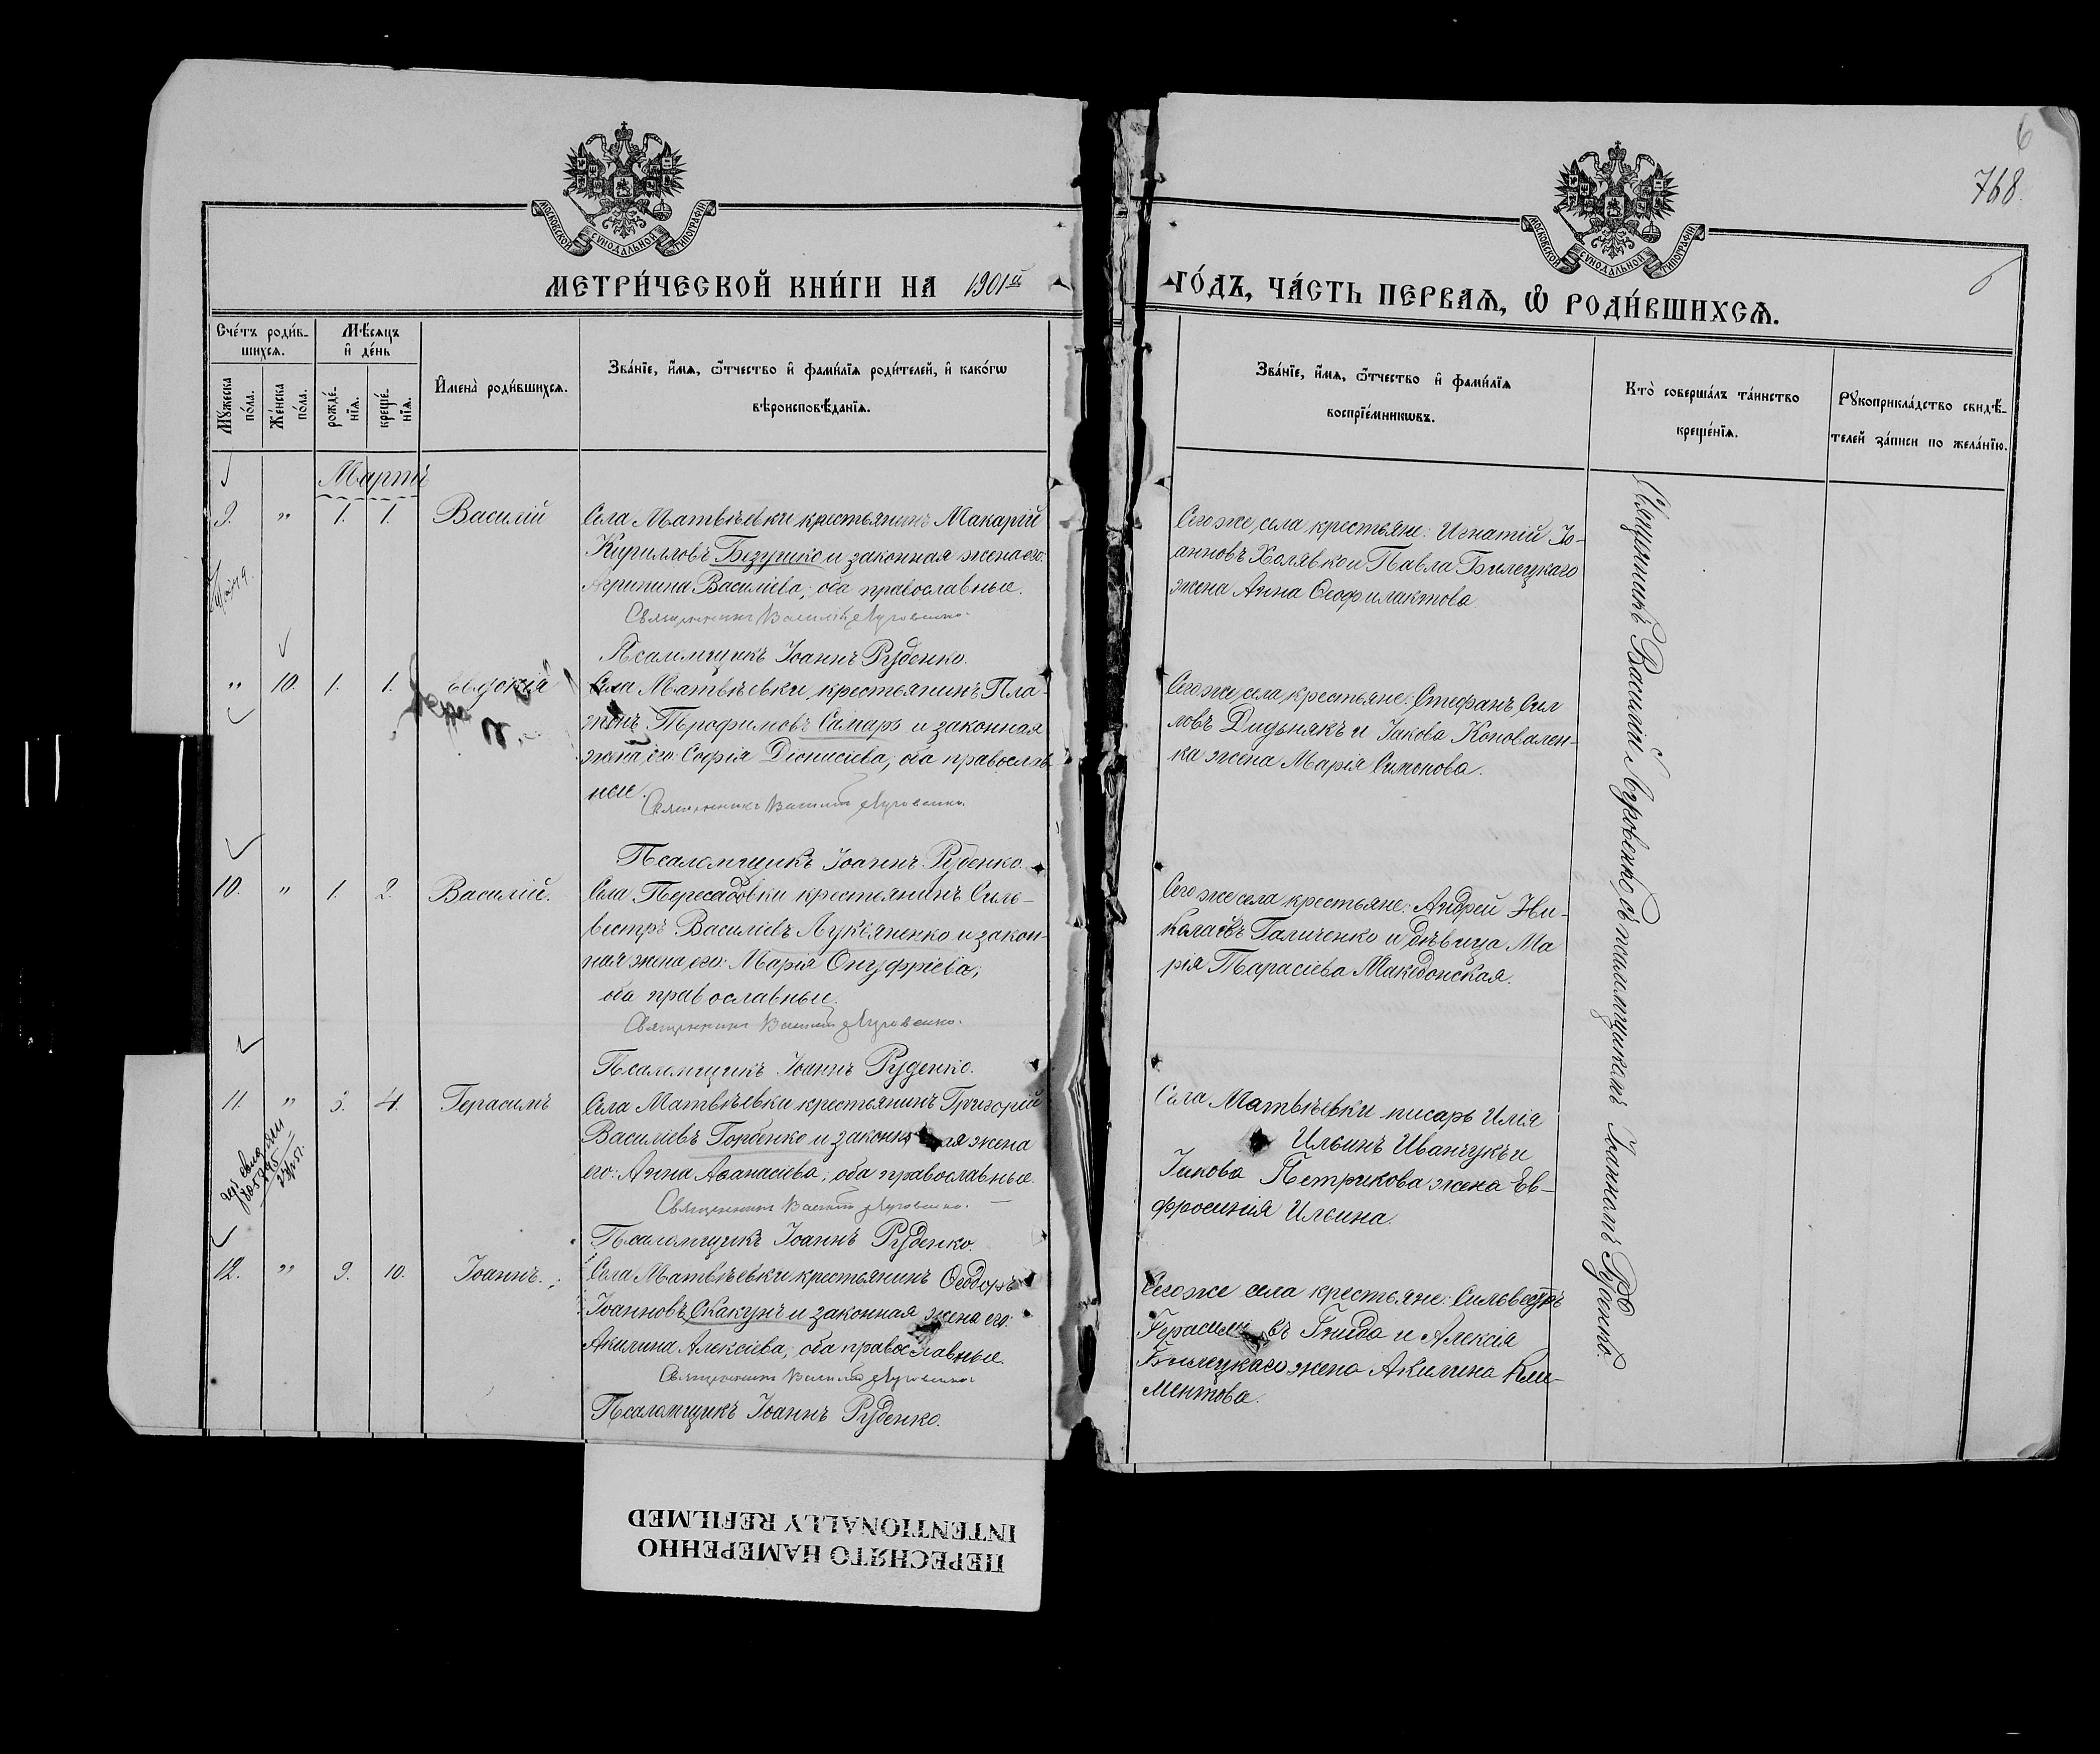 6
768.
МОСКОВСКОЙ СѴНОДАЛЬНОЙ ТИПОГРАФІИ
МОСКОВСКОЙ СѴНОДАЛЬНОЙ ТИПОГРАФІИ
МЕТРИ́ЧЕСКОЙ КНИ́ГИ НА 1901й
ГО́ДЪ, ЧА́СТЬ ПЕРВАѦ, Ѡ РОДИ́ВШИХСѦ.
Сче́тъ роди́в-
шихсѧ.
Мꙋжеска
по́ла.
Же́нска
по́ла.
Мѣсѧцъ
и҆ де́нь
рожде́-
нїѧ.
креще́-
нїѧ.
И҆мена̀ роди́вшихсѧ.
Зва́нїе, и҆́мѧ, ѻ҆́тчество и҆ фами́лїѧ роди́телей, и҆ како́гѡ
вѣроисповѣ́данїѧ.
Зва́нїе, и҆́мѧ, ѻ҆́тчество и҆ фами́лїѧ
воспрїе́мникѡвъ.
Кто̀ соверша́лъ та́инство
креще́нїѧ.
Рꙋкоприкла́дство свидѣ́-
телей за́писи по жела́нїю.
Мартъ
9. " 1. 1. Василій
Села Матвѣевки крестьянинъ Макарій
Кирилловъ Безушко и законная жена его:
Агрипина Василіева; оба православные.
Священникъ Василій Луговенко.
Псаломщикъ Іоаннъ Руденко.
Сего же села крестьяне: Игнатій Іо-
анновъ Холявко и Павла Билецкаго
жена Анна Ѳеофилактова.
" 10. 1. 1. Евдокія
Села Матвѣевки, крестьянинъ Пла-
тонъ Трофимовъ Самаръ и законная
жена его: Софія Діонисіева, оба православ-
ные.
Священникъ Василій Луговенко.
Псаломщикъ Іоаннъ Руденко.
Сего же села крестьяне: Стефанъ Сил
ловъ Дидьнякъ и Іакова Коновален-
ка жена Марія Симонова.
10. " 1. 2. Василій.
Села Пересадовки крестьянинъ Силь-
вестръ Василіевъ Лукьяненко и закон-
ная жена его: Марія Онуфріева;
оба православные.
Священникъ Василій Луговенко.
Псаломщикъ Іоаннъ Руденко.
Сего же села крестьяне: Андрей Ни-
колаевъ Галиченко и дѣвица Ма
рія Тарасіева Македонская.
11. " 3. 4. Герасимъ
Села Матвѣевки крестьянинъ Григорій
Василіевъ Горбенко и законная жена
его: Анна Аѳанасіева; оба православные.
Священникъ Василій Луговенко.
Псаломщикъ Іоаннъ Руденко.
Села Матвѣевки писарь Илія
Ильинъ Иванчукъ и
Іакова Петрикова жена Ев-
фросинія Ильина.
12. " 9. 10. Іоаннъ.
Села Матвѣевки крестьянинъ Ѳеодоръ
Іоанновъ Скакунъ и законная жена его:
Акилина Алексіева; оба православные.
Священникъ Василій Луговенко
Псаломщикъ Іоаннъ Руденко.
Сего же села крестьяне: Сильвестръ
Герасимовъ Гнида и Алексія
Билецкаго жена Акилина Кли-
ментова.
Священникъ Василій Луговенко съ псаломщикомъ Іоанномъ Руденко.
ПЕРЕСНЯТО НАМЕРЕННО
INTENTIONALLY REFILMED